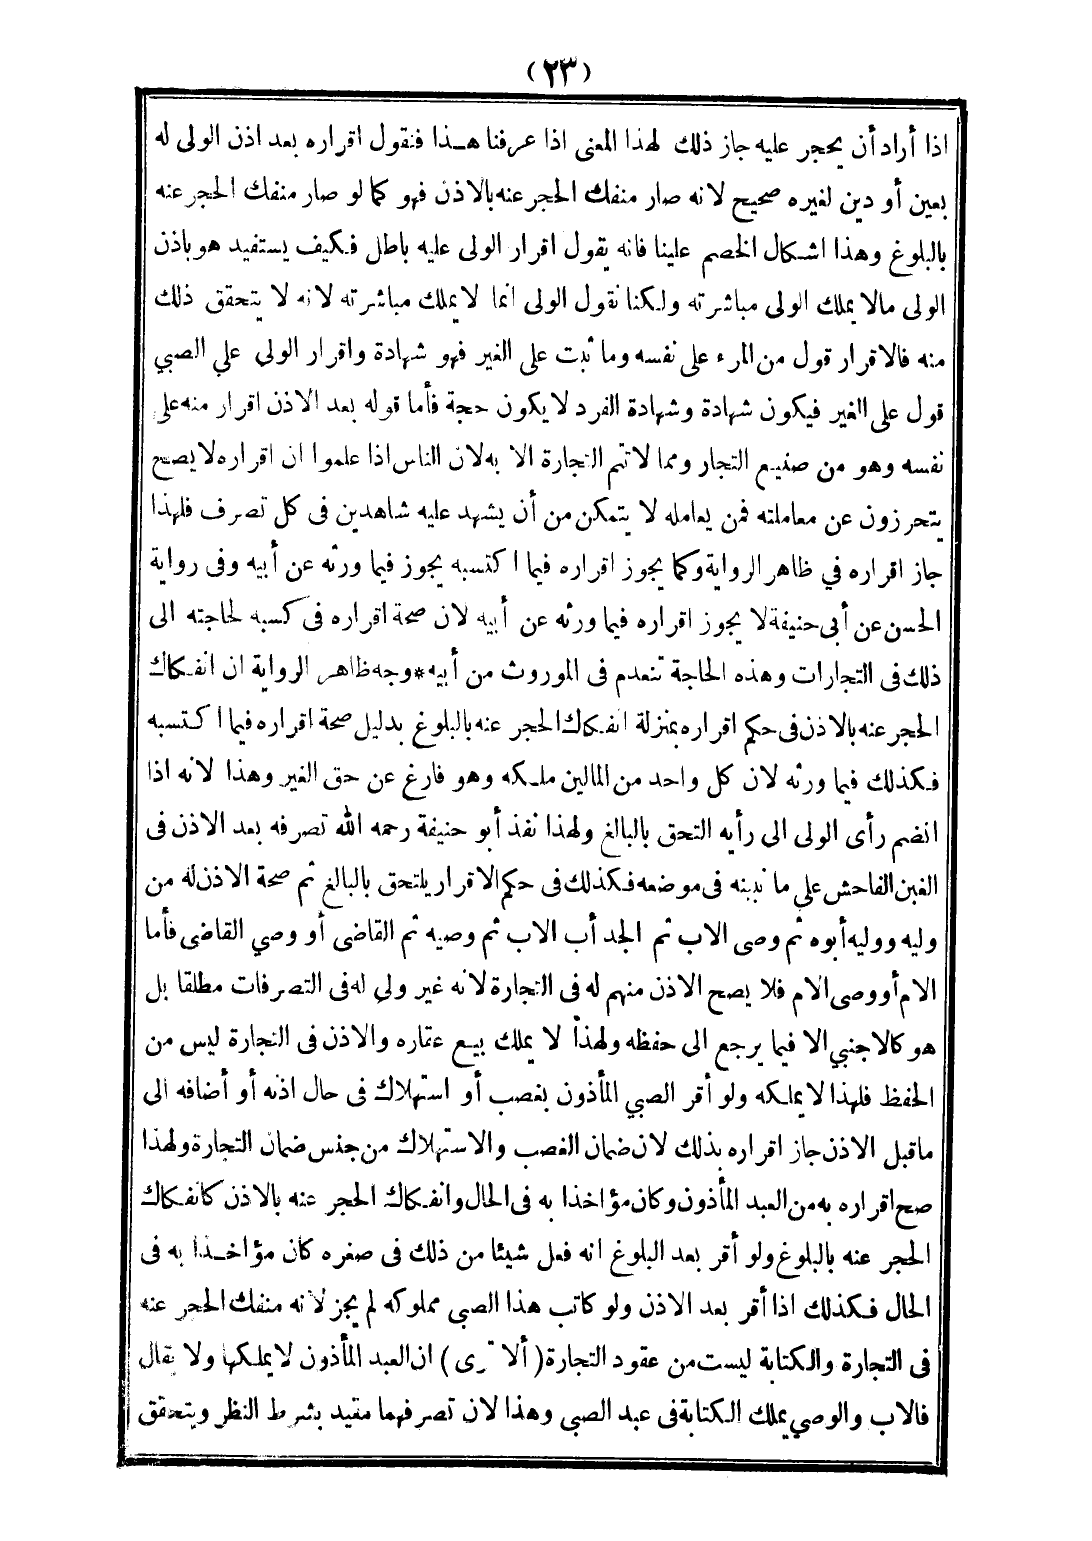 (٢٣)
اذا أراد أن يحجر عليه جاز ذلك لهذا المعنى اذا عرفنا هـذا فنقول اقراره بعد اذن الولى له
بعين أو دين لغيره صحيح لانه صار منفك الحجر عنه بالاذن فهو كما لو صار منفك الحجر عنه
بالبلوغ وهذا اشكال الخصم علينا فانه يقول اقرار الولى عليه باطل فكيف يستفيد هو باذن
الولى مالا يملك الولى مباشرته ولكنا نقول الولى انما لا يملك مباشرته لانه لا يتحقق ذلك
منه فالاقرار قول من المرء على نفسه وما ثبت على الغير فهو شهادة واقرار الولي علي الصبي
قول على الغير فيكون شهادة وشهادة الفرد لا يكون حجة فأما قوله بعد الاذن اقرار منه على
نفسه وهو من صنيع التجار ومما لا تتم التجارة الا به لان الناس اذا علموا ان اقراره لا يصح
يتحرزون عن معاملته فمن يعامله لا يتمكن من أن يشهد عليه شاهدين فى كل تصرف فلهذا
جاز اقراره في ظاهر الرواية وكما يجوز اقراره فيما اكتسبه يجوز فيما ورثه عن أبيه وفى رواية
الحسن عن أبى حنيفة لا يجوز اقراره فيما ورثه عن أبيه لان صحة اقراره فى كسبه لحاجته الى
ذلك فى التجارات وهذه الحاجة تنعدم فى الموروث من أبيه*وجه ظاهر الرواية ان انفكاك
الحجر عنه بالاذن فى حكم اقراره بمنزلة انفكاك الحجر عنه بالبلوغ بدليل صحة اقراره فيما اكتسبه
فكذلك فيما ورثه لان كل واحد من المالين ملكه وهو فارغ عن حق الغير وهذا لانه اذا
انضم رأى الولى الى رأيه التحق بالبالغ ولهذا نفذ أبو حنيفة رحمه الله تصرفه بعد الاذن فى
الغبن الفاحش علي ما نبينه فى موضعه فكذلك فى حكم الاقرار يلتحق بالبالغ ثم صحة الاذن له من
وليه ووليه أبوه ثم وصى الاب ثم الجد أب الاب ثم وصيه ثم القاضى أو وصي القاضى فأما
الام أو وصى الام فلا يصح الاذن منهم له فى التجارة لانه غير ولي له فى التصرفات مطلقا بل
هو كالاجنبي الا فيما يرجع الى حفظه ولهذا لا يملك بيع عقاره والاذن فى التجارة ليس من
الحفظ فلهذا لا يملكه ولو أقر الصبي المأذون بغصب أو استهلاك فى حال اذنه أو أضافه الى
ماقبل الاذن جاز اقراره بذلك لان ضمان الغصب والاستهلاك من جنس ضمان التجارة ولهذا
صح اقراره به من العبد المأذون وكان مؤاخذا به فى الحال وانفكاك الحجر عنه بالاذن كانفكاك
الحجر عنه بالبلوغ ولو أقر بعد البلوغ انه فعل شيئا من ذلك فى صغره كان مؤاخـذا به فى
الحال فكذلك اذا أقر بعد الاذن ولو كاتب هذا الصبى مملوكه لم يجز لانه منفك الحجر عنه
فى التجارة والكتابة ليست من عقود التجارة (ألا ترى) ان العبد المأذون لا يملكها ولا يقال
فالاب والوصي يملك الكتابة فى عبد الصبي وهذا لان تصرفهما مقيد بشرط النظر ويتحقق